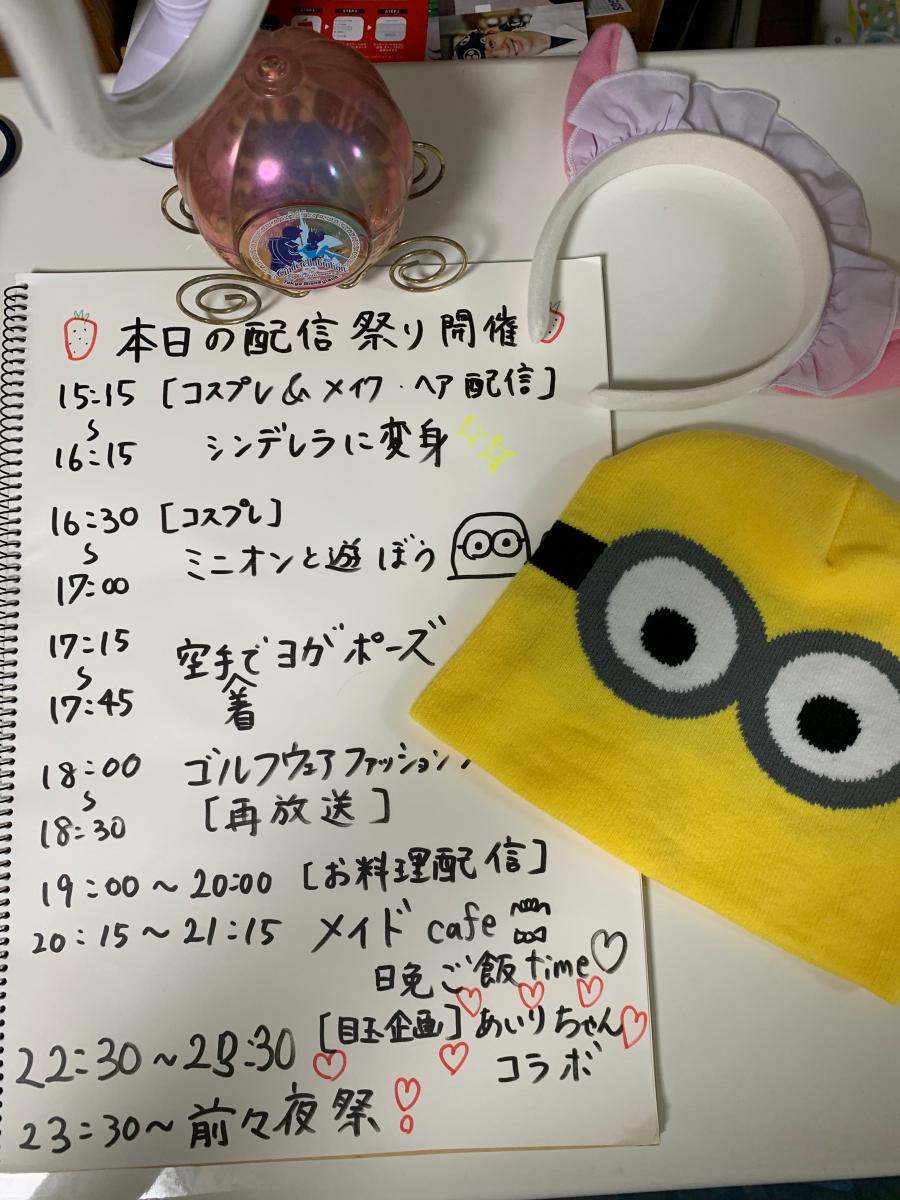 Cinderellabration
Tokyo Disneyland
本日の配信祭り開催
15:15 [コスプレ&メイク・ヘア配信]
〜
16:15 シンデレラに変身
16:30 [コスプレ]
〜 ミニオンと遊ぼう
17:00
17:15 空手着でヨガポーズ
〜
17:45
18:00 ゴルフウェアファッション
〜 [再放送]
18:30
19:00〜20:00 [お料理配信]
20:15〜21:15 メイドcafe
晩ご飯time♡
22:30〜23:30 [目玉企画] あいりちゃん
コラボ
23:30〜前々夜祭!